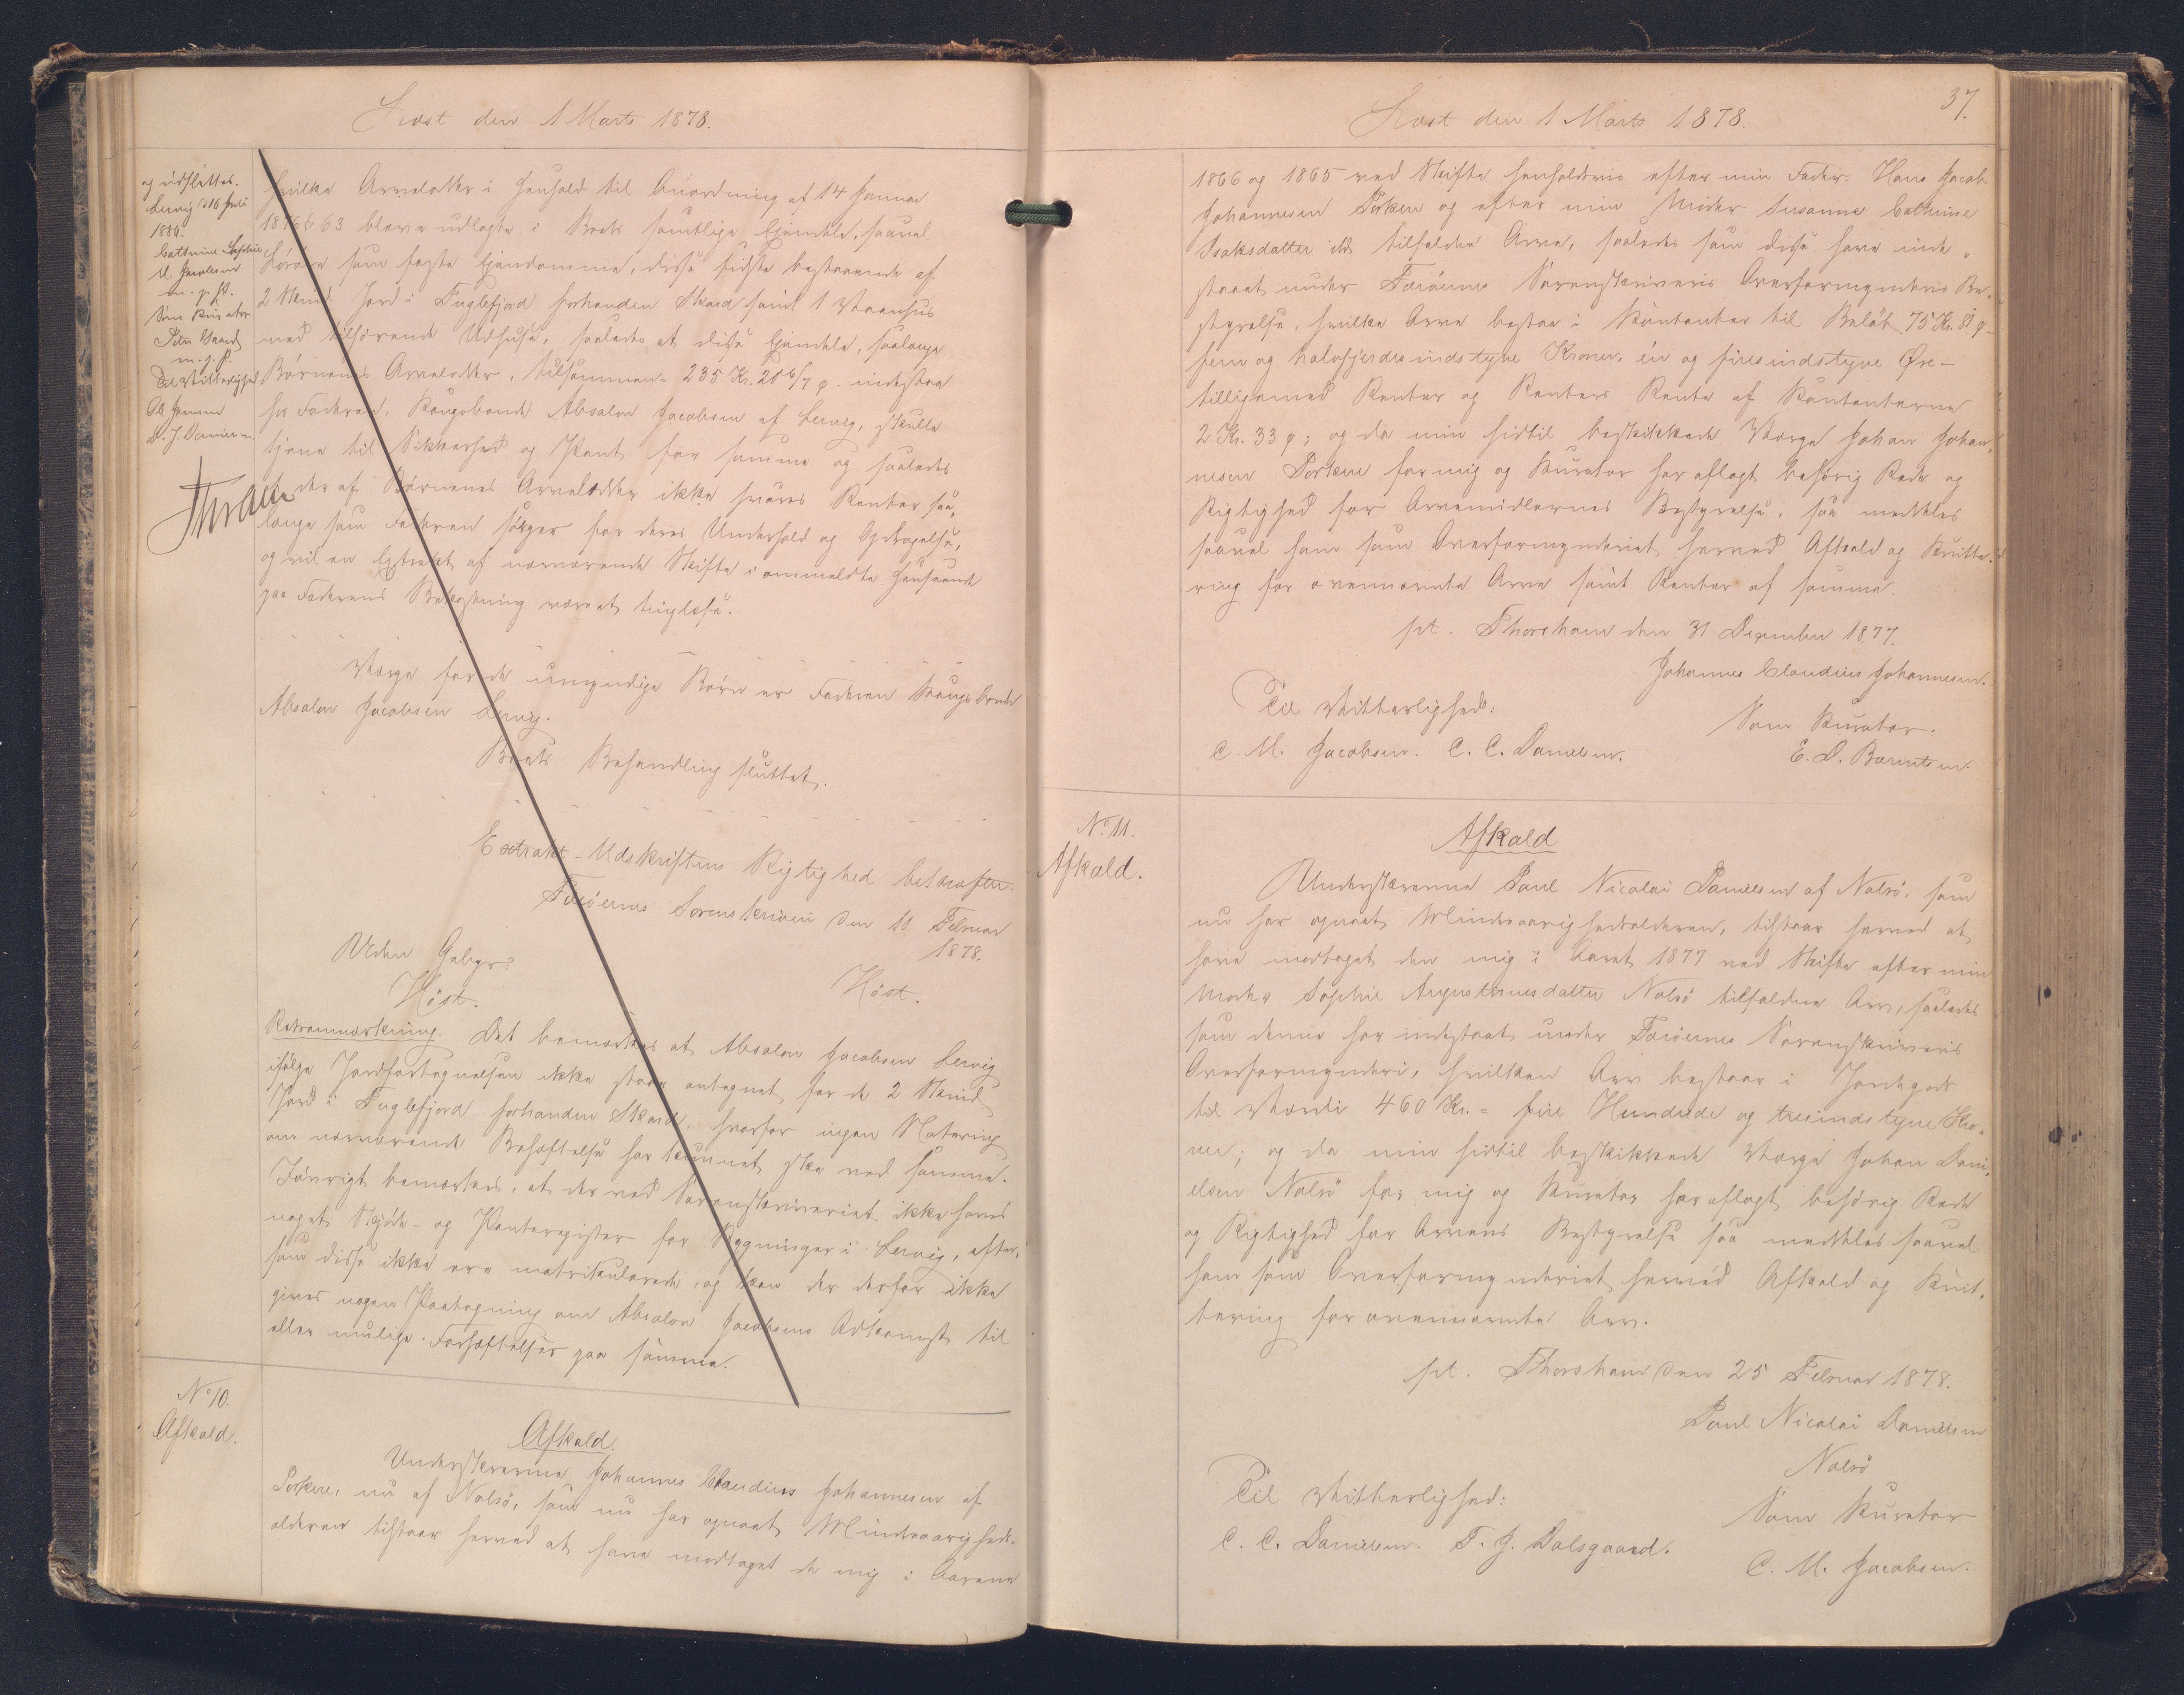 Læst den 1 Marts 1878.
og udslettes.
Lervig d 16 Juli
1884.
Cathrine Sophie
M. Jacobsen
m. p. P.
Som Kurator
m. p. P.
Til Vitterlighed
Ol. Jensen
D. J. Danielsen
hvilke Arvelodder i Henhold til Anordning af 14 Januar
1876 § 63 bleve udlagte i Boets samtlige Ejendele, saavel
Løsöre som faste Ejendomme, disse sidste bestaaende af
2 Skind Jord i Fuglefjord forhenden Skard samt 1 Vaanhus
med tilhörende Udhuse, saaledes at disse Ejendele, saalænge
Börnenes Arvelodder, tilsammen = 235 Kr. 20 6/7 ø. indestaa
hos Faderen, Kongsbonde Absalon Jacobsen af Lervig, skulle
tjene til Sikkerhed og Pant for samme og saaledes
at der af Börnenes Arvelodder ikke svares Renter saa-
længe som Faderen sörger for deres Underhold og Opdragelse,
og vil en Extrakt af nærværende Skifte i ommeldte Henseende
paa Faderens Bekostning være at tinglæse.
Værge for de umyndige Börn er Faderen Kongsbonde
Absalon Jacobsen Lervig.
Boets Behandling sluttet.
Extrakt-Udskriftens Rigtighed bekræftes.
Færöernes Sorenskriveri den 11 Februar
1878.
Uden Gebyr:
Höst. Höst.
Retsanmærkning. Det bemærkes at Absalon Jacobsen Lervig
ifölge Jordfortegnelsen ikke staar antegnet for de 2 Skind
Jord i Fuglefjord forhenden Skard, hvorfor ingen Notering
om nærværende Behæftelse har kunnet ske ved samme.
Iövrigt bemærkes, at der ved Sorenskriveriet ikke haves
noget Skjöde- og Panteregister for Bygninger i Lervig, efter-
som disse ikke ere matrikulerede, og kan der derfor ikke
gives nogen Paategning om Absalon Jacobsens Adkomst til
eller mulige Forhæftelser paa samme.
No 10.
Afkald.
Afkald.
Underskrevne Johannes Claudius Johannesen af
Porkere, nu af Nolsö, som nu har opnaaet Mindreaarigheds-
alderen tilstaar herved at have modtaget de mig i Aarene
Læst den 1 Marts 1878.
37.
1866 og 1865 ved Skifte henholdsvis efter min Fader Hans Jacob
Johannesen Porkere og efter min Moder Susanne Cathrine
Isaksdatter ibd. tilfaldne Arve, saaledes som disse have inde-
staaet under Færöernes Sorenskriveris Overformynderis Be-
styrelse, hvilke Arve bestaa i Kontanter til Belöb 75 Kr. 81 ø -
fem og halvfjerdesindstyve Kroner, én og firesindstyve Øre -
tilligemed Renter og Renters Rente af Kontanterne
2 Kr. 33 ø; og da min hidtil beskikkede Værge Johan Johan-
nesen Porkere for mig og Kurator har aflagt behörig Rede og
Rigtighed for Arvemidlernes Bestyrelse, saa meddeles
saavel ham som Overformynderiet herved Afkald og Kvitte-
ring for ovennævnte Arve samt Renter af samme.
pt. Thorshavn den 31 December 1877.
Johannes Claudius Johannesen.
Til Vitterlighed: Som Kurator.
C. M. Jacobsen. C. C. Danielsen. E. D. Bærentsen
No 11.
Afkald.
Afkald
Underskrevne Poul Nicolai Danielsen af Nolsö, som
nu har opnaaet Mindreaarighedsalderen, tilstaar herved at
have modtaget den mig i Aaret 1877 ved Skifte efter min
Moder Sophie Augustinusdatter Nolsö tilfaldne Arv, saaledes
som denne har indestaaet under Færöernes Sorenskriveris
Overformynderi, hvilken Arv bestaar i Jordegods
til Værdi 460 Kr. = fire Hundrede og tresindstyve Kro-
ner; og da min hidtil beskikkede Værge Johan Dani-
elsen Nolsö for mig og Kurator har aflagt behörig Rede
og Rigtighed for Arvens Bestyrelse saa meddeles saavel
ham som Overformynderiet herved Afkald og Kvit-
tering for ovennævnte Arv.
pt. Thorshavn den 25 Februar 1878.
Poul Nicolai Danielsen
Nolsö
Til Vitterlighed: Som Kurator
C. C. Danielsen. T. J. Dalsgaard. C. M. Jacobsen.